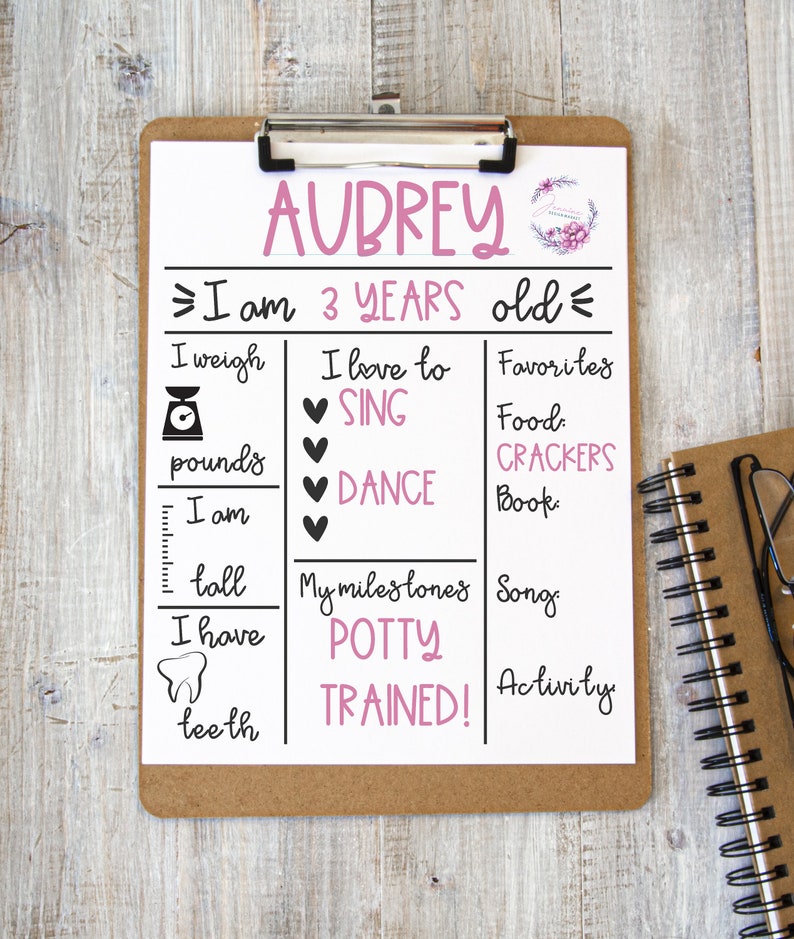 AUBREY
Jeanine
DESIGN MARKET
I am 3 YEARS old
I weigh
pounds
I am
tall
I have
teeth
I love to
SING
DANCE
My milestones
POTTY
TRAINED!
Favorites
Food:
CRACKERS
Book:
Song:
Activity: